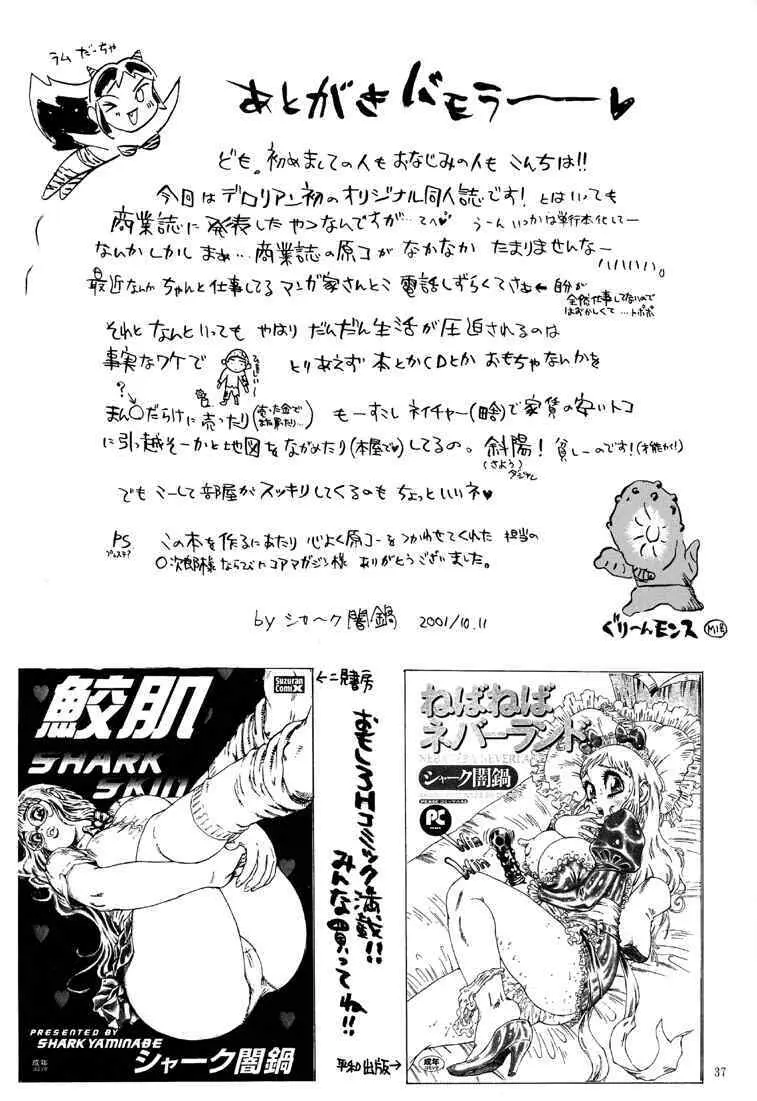 ラムだーちゃ
あとがきバモラーー♥
ども。初めましての人もおなじみの人も こんちは!!
今回はデロリアン初のオリジナル同人誌です! とはいっても
商業誌に発表したやつなんですが…てへ♥ うーん いつかは単行本化してー
なんか しかし まぁ…商業誌の原コが なかなか たまりませんなー
ハハハハハ。
最近なんか ちゃんと仕事してる マンガ家さんとこ 電話しずらくてさぁ ← 自分が
全然仕事してないので
はずかしくて…トホホ
それと なんといっても やはり だんだん生活が圧迫されるのは
事実なワケで とりあえず 本とかCDとか おもちゃなんかを
?
まん〇だらけに売ったり
もーすこし ネイチャー(略)で家賃の安いトコ
に引っ越そーかと地図をながめたり(本屋で♥)してるの。斜陽! 貧しーのです!(才能が!)
(さよう)
でもこーして部屋がスッキリしてくるのも ちょっといいネ♥
PS この本を作るにあたり 心よく原コーをつかわせてくれた 担当の
プレステ?
〇次郎様ならびにコアマガジン様 ありがとうございました。
by シャーク闇鍋 2001/10.11
ぐりーんモンス
←二見書房
Suzuran
ComiX
鮫肌
SHARK
SKIN
PRESENTED BY
SHARK YAMINABE
シャーク闇鍋
成年
コミック
おもしろHコミック満載!!
みんな買ってね!!
平和出版→
ねばねば
ネバーランド
シャーク闇鍋
PC
Win
Win
成年
コミック
37